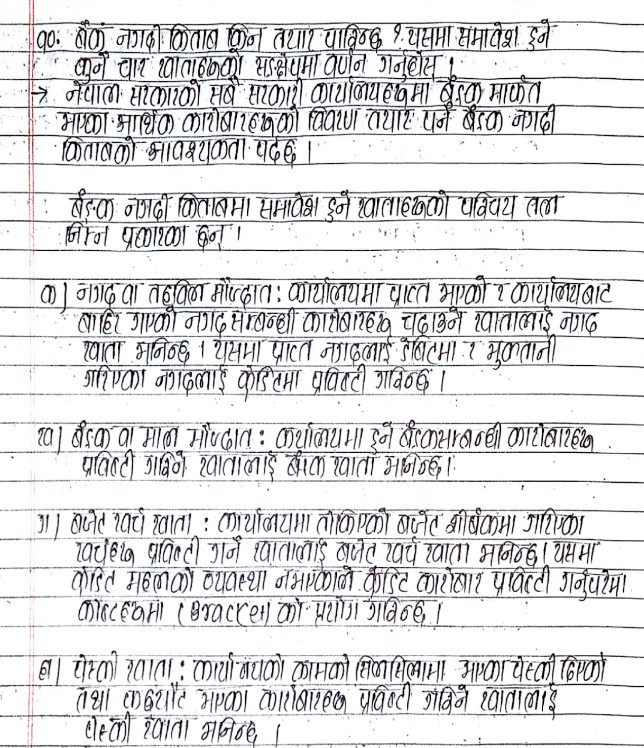 १०. बैंक नगदी किताब किन तयार पारिन्छ ? यसमा समावेश हुने
कुनै चार खाताहरूको सङ्क्षेपमा वर्णन गर्नुहोस ।
→ नेपाल सरकारको सबै सरकारी कार्यालयहरूमा बैंङक मार्फत
भएका आर्थिक कारोबारहरूको विवरण तयार पर्न बैङक नगदी
किताबको आवश्यकता पर्दछ ।
बैङक नगदी किताबमा समावेश हुने खाताहरूको परिचय तल
निम्न प्रकारका छन् ।
क) नगद वा तहविल मौज्दात : कार्यालयमा प्राप्त भएको र कार्यालयबाट
बाहिर गएको नगद सम्बन्धी कारोबारहरू चढाउने खातालाई नगद
खाता भनिन्छ । यसमा प्राप्त नगदलाई डेबिटमा र भुक्तानी
गरिएका नगदलाई क्रेडिटमा प्रविष्टी गरिन्छ ।
ख) बैङक वा माल मौज्दात : कार्यालयमा हुने बैङकसम्बन्धी कारोबारहरू
प्रविष्टी गरिने खातालाई बैंक खाता भनिन्छ।
ग) बजेट खर्च खाता : कार्यालयमा तोकिएको बजेट शीर्षकमा गरिएका
खर्चहरू प्रविष्टी गर्ने खातालाई बजेट खर्च खाता भनिन्छ। यसमा
क्रेडिट महलको व्यवस्था नभएकाले क्रेडिट कारोबार प्रविष्टी गर्नुपरेमा
कोष्टहरूमा (Bracket) को प्रयोग गरिन्छ ।
घ) पेस्की खाता : कार्यालयको कामको सिलसिलामा भएका पेस्की दिएको
तथा फछ्यौट भएका कारोबारहरू प्रविष्टी गरिने खातालाई
पेस्की खाता भनिन्छ ।